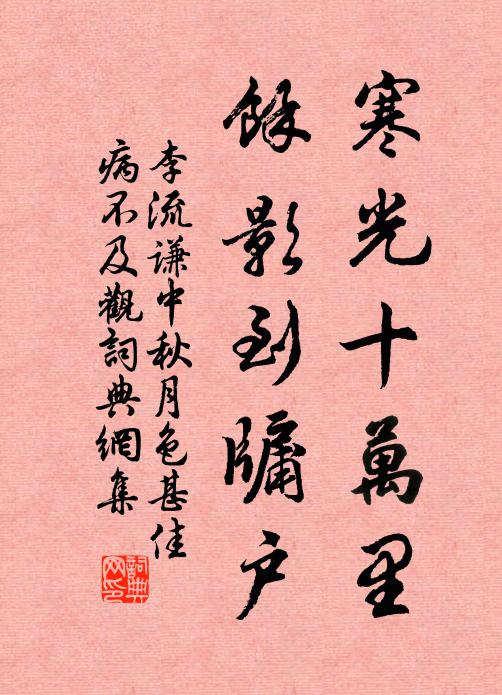 寒光十萬里
餘影到牖戶
李流谦中秋月色甚佳
病不及觀詞典網集
詞典网印